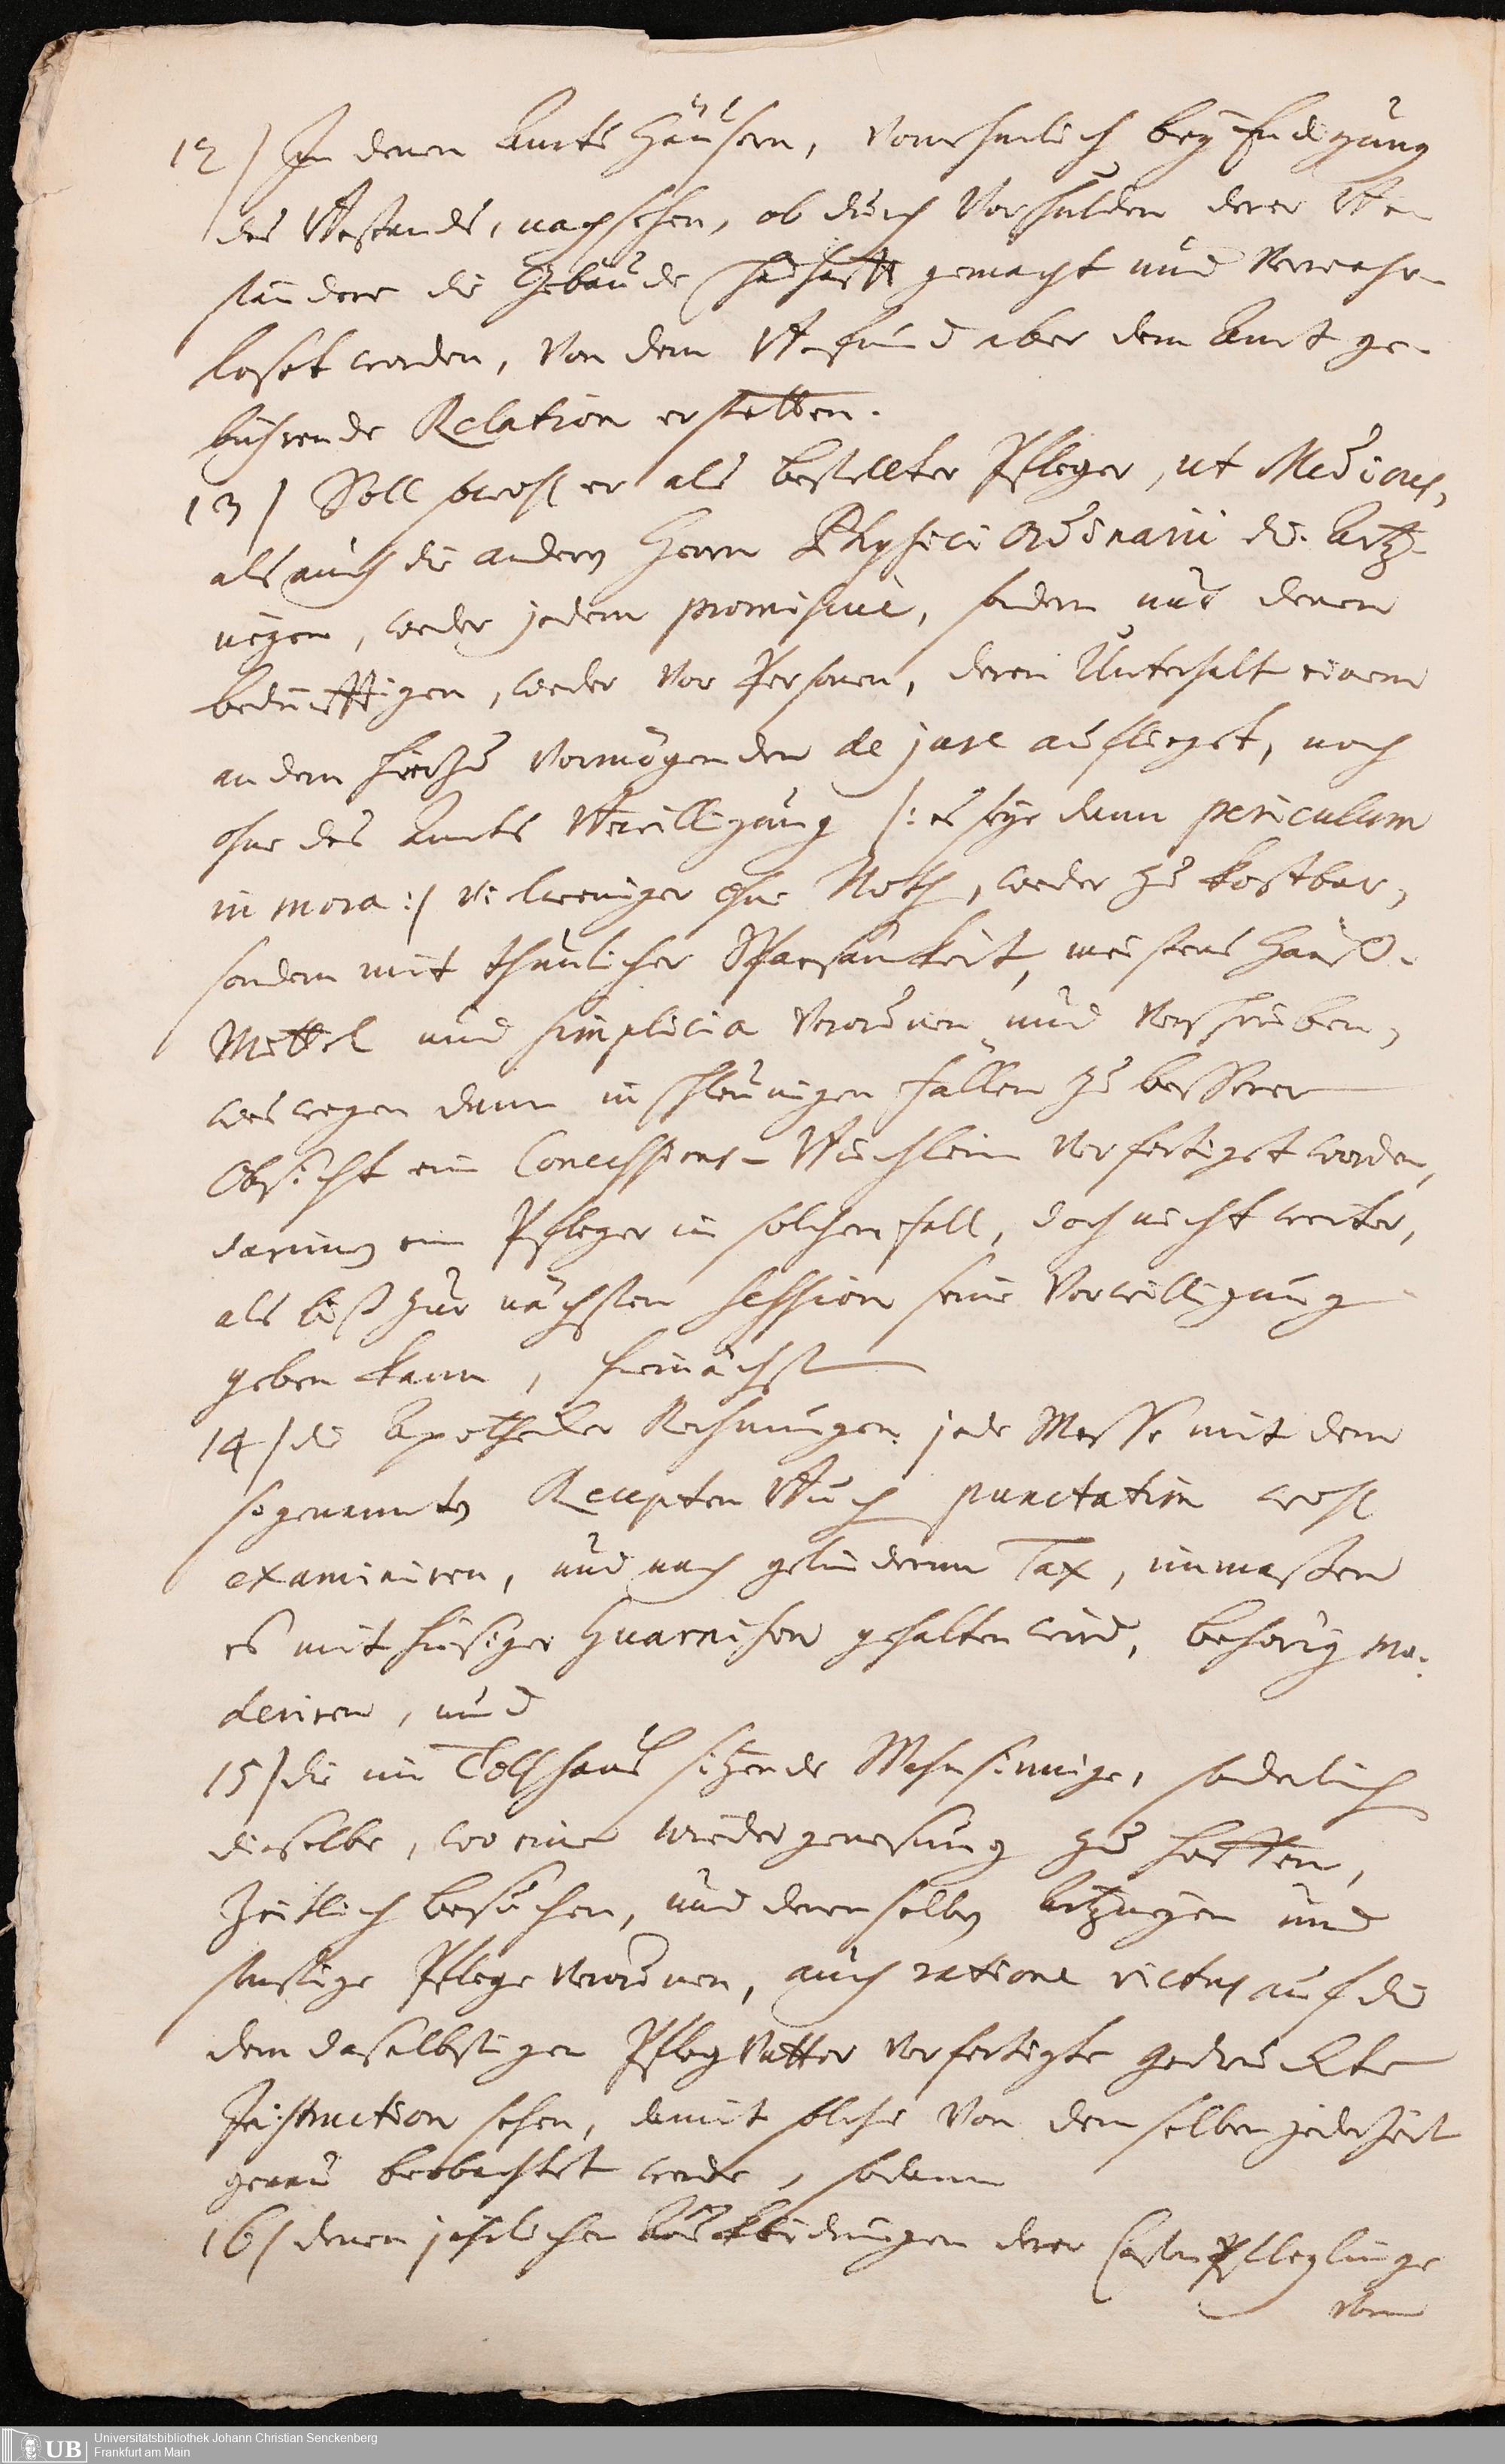 12) In denen Amts Häusern, vornehmlich bey Endigung
des Bestands, nachsehen, ob durch Verschulden derer Be-
ständere die Gebäude schadhafft gemacht und verwahr-
loset worden, von dem Befund aber dem Amt ge-
bührende Relation erstatten.
13) Soll sowohl er als bestellter Pfleger, ut Medicus,
als auch die andern Herrn Physici Ordinarii die Artz-
neyen, weder jedem promiscué, sondern nur denen
bedürfftigen, weder vor Personen, deren Unterhalt einem
andern hierzu vermögenden de jure aufliegt, noch
ohne des Amts Bewilligung /: es seye dann periculum
in mora :/ vielweniger ohne Noth, weder zu kostbar,
sondern mit thunlicher Sparsamkeit, meistens Hauß-
Mittel und simplicia verordnen und verschreiben,
weswegen dann in schleunigen Fällen zu besserer
Obsicht ein Concessions-Büchlein verfertiget worden,
darinn ein Pfleger in solchem Fall, doch nicht weiter,
als biß zur nächsten Session seine Verwilligung
geben kann, hiernächst
14) die Apothecker Rechnungen jede Messe mit dem
sogenannten Recepten Buch punctatim wohl
examiniren, und nach gelinderem Tax, inmassen
es mit hiesiger Guarnison gehalten wird, behörig mo-
deriren, und
15) die im Tollhaus sitzende Wahnsinnige, sonderlich
dieselbe, wo eine wiedergenesung zu hoffen,
zeitlich besuchen, und denenselben Artzneyen und
sonstige Pflege verordnen, auch ratione victus auf die
dem daselbstigen Pflegvatter verfertigte gedruckte
Instruction sehen, damit solche von demselben jederzeit
genau beobachtet werde, sodann
16) denen jährlichen Auskleidungen derer Casten Pfleglinge
vom
Universitätsbibliothek Johann Christian Senckenberg
Frankfurt am Main
UB